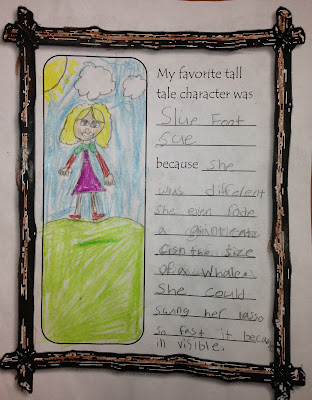 My favorite tall
tale character was
Slue Foot
Sue
because she
was different
she even rode
a
the size
of a whale.
She could
swing her lasso
so fast it becam
in visible.